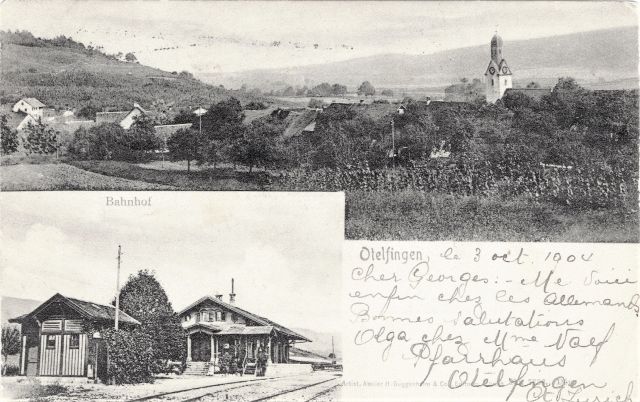 Bahnhof
Otelfingen, le 3 oct. 1904
Cher Georges:- Me voici
enfin chez les Allemands
Bonnes salutations
Olga chez Mme Naef
Pfarrhaus
Artist. Atelier H. Guggenheim & Co.,
Otelfingen
Ct. Zurich